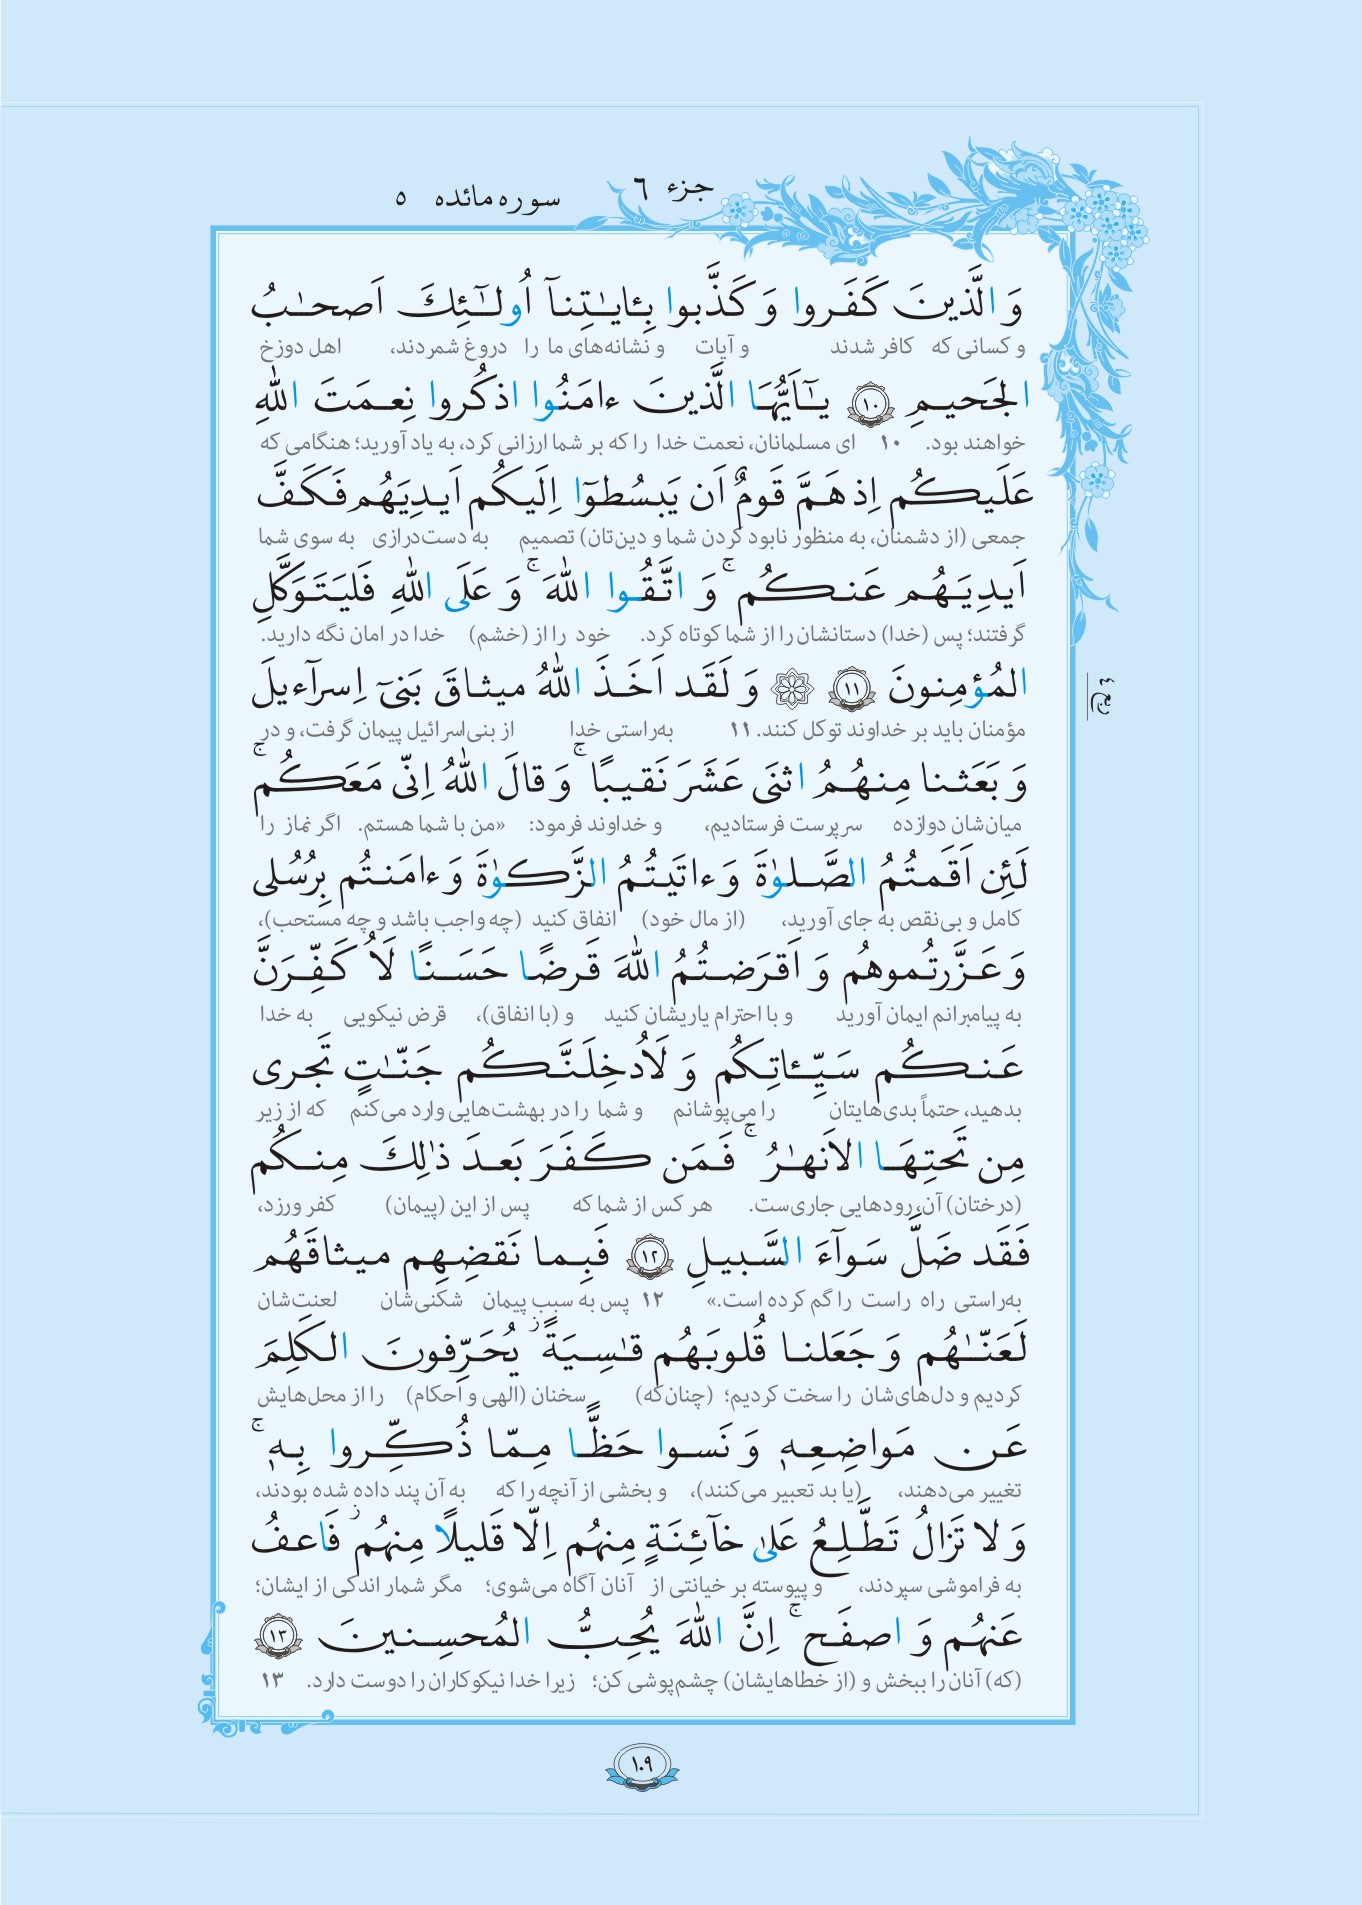 جزء ٦ سوره مائده ٥
وَ الَّذینَ کَفَروا وَ کَذَّبوا بِـٔایـٰتِنآ اُولـٰٓئِکَ اَصحـٰبُ
و کسانی که کافر شدند و آیات و نشانه‌های ما را دروغ شمردند، اهل دوزخ
الجَحیمِ ١٠ یـٰٓاَیُّهَا الَّذینَ ءامَنُوا اذکُروا نِعمَتَ اللّٰهِ
خواهند بود. ۱۰ ای مسلمانان، نعمت خدا را که بر شما ارزانی کرد، به یاد آورید؛ هنگامی که
عَلَیکُم اِذ هَمَّ قَومٌ اَن یَبسُطوٓا اِلَیکُم اَیدِیَهُم فَکَفَّ
جمعی (از دشمنان، به منظور نابود کردن شما و دین‌تان) تصمیم به دست‌درازی به سوی شما
اَیدِیَهُم عَنکُم ۚ وَ اتَّقُوا اللّٰهَ ۚ وَ عَلَی اللّٰهِ فَلیَتَوَکَّلِ
گرفتند؛ پس (خدا) دستانشان را از شما کوتاه کرد. خود را از (خشم) خدا در امان نگه دارید.
المُؤمِنونَ ١١ وَ لَقَد اَخَذَ اللّٰهُ میثاقَ بَنیٓ اِسرآءیلَ
ربع ٤
مؤمنان باید بر خداوند توکل کنند. ۱۱ به‌راستی خدا از بنی‌اسرائیل پیمان گرفت، و در
وَ بَعَثنا مِنهُمُ اثنَی عَشَرَ نَقیبًا ۚ وَ قالَ اللّٰهُ اِنّی مَعَکُم ۚ
میان‌شان دوازده سرپرست فرستادیم، و خداوند فرمود: «من با شما هستم. اگر نماز را
لَئِن اَقَمتُمُ الصَّلوٰةَ وَ ءاتَیتُمُ الزَّکوٰةَ وَ ءامَنتُم بِرُسُلی
کامل و بی‌نقص به جای آورید، (از مال خود) انفاق کنید (چه واجب باشد و چه مستحب)،
وَ عَزَّرتُموهُم وَ اَقرَضتُمُ اللّٰهَ قَرضًا حَسَنًا لَاُکَفِّرَنَّ
به پیامبرانم ایمان آورید و با احترام یاریشان کنید و (با انفاق)، قرض نیکویی به خدا
عَنکُم سَیِّـٔاتِکُم وَ لَاُدخِلَنَّکُم جَنّـٰتٍ تَجری
بدهید، حتماً بدی‌هایتان را می‌پوشانم و شما را در بهشت‌هایی وارد می‌کنم که از زیر
مِن تَحتِهَا الاَنهـٰرُ ۚ فَمَن کَفَرَ بَعدَ ذٰلِکَ مِنکُم
(درختان) آن، رودهایی جاری‌ست. هر کس از شما که پس از این (پیمان) کفر ورزد،
فَقَد ضَلَّ سَوآءَ السَّبیلِ ١٢ فَبِما نَقضِهِم میثاقَهُم
به‌راستی راه راست را گم کرده است.» ۱۲ پس به سبب پیمان شکنی‌شان لعنت‌شان
لَعَنّـٰهُم وَ جَعَلنا قُلوبَهُم قـٰسِیَةً ز یُحَرِّفونَ الکَلِمَ
کردیم و دل‌های‌شان را سخت کردیم؛ (چنان‌که) سخنان (الهی و احکام) را از محل‌هایش
عَن مَواضِعِهٖ وَ نَسوا حَظًّا مِمّا ذُکِّروا بِهٖ ۚ
تغییر می‌دهند، (یا بد تعبیر می‌کنند)، و بخشی از آنچه را که به آن پند داده شده بودند،
وَ لا تَزالُ تَطَّلِعُ عَلیٰ خآئِنَةٍ مِنهُم اِلّا قَلیلًا مِنهُم ز فَاعفُ
به فراموشی سپردند، و پیوسته بر خیانتی از آنان آگاه می‌شوی؛ مگر شمار اندکی از ایشان؛
عَنهُم وَ اصفَح ۚ اِنَّ اللّٰهَ یُحِبُّ المُحسِنینَ ١٣
(که) آنان را ببخش و (از خطاهایشان) چشم‌پوشی کن؛ زیرا خدا نیکوکاران را دوست دارد. ۱۳
١٠٩